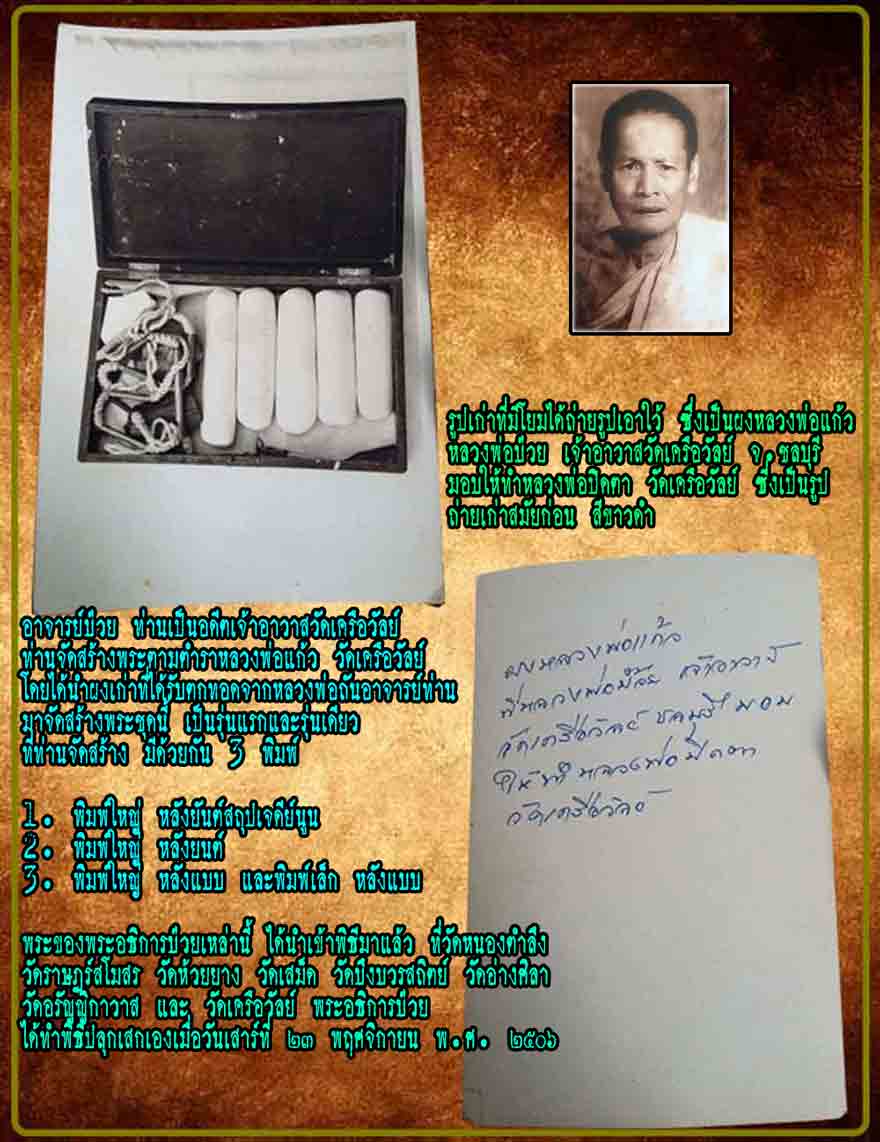 รูปเก่าที่มีโยมได้ถ่ายรูปเอาใว้ ซึ่งเป็นผงหลวงพ่อแก้ว
หลวงพ่อป่วย เจ้าอาวาสวัดเครือวัลย์ จ.ชลบุรี
มอบให้ทำหลวงพ่อปิดตา วัดเครือวัลย์ ซึ่งเป็นรูป
ถ่ายเก่าสมัยก่อน สีขาวดำ
อาจารย์ป่วย ท่านเป็นอดีตเจ้าอาวาสวัดเครือวัลย์
ท่านจัดสร้างพระตามตำราหลวงพ่อแก้ว วัดเครือวัลย์
โดยได้นำผงเก่าที่ได้รับตกทอดจากหลวงพ่อถันอาจารย์ท่าน
มาจัดสร้างพระชุดนี้ เป็นรุ่นแรกและรุ่นเดียว
ที่ท่านจัดสร้าง มีด้วยกัน 3 พิมพ์
1. พิมพ์ใหญ่ หลังยันต์สถุปเจดีย์นูน
2. พิมพ์ใหญ่ หลังยนต์
3. พิมพ์ใหญ่ หลังแบบ และพิมพ์เล็ก หลังแบบ
พระของพระอธิการป่วยเหล่านี้ ได้นำเข้าพิธีมาแล้ว ที่วัดหนองตำลึง
วัดราษฎร์สโมสร วัดห้วยยาง วัดเสม็ด วัดปึงบวรสถิตย์ วัดอ่างศิลา
วัดอรัญญิกาวาส และ วัดเครือวัลย์ พระอธิการป่วย
ได้ทำพิธีปลุกเสกเองเมื่อวันเสาร์ที่ ๒๓ พฤศจิกายน พ.ศ. ๒๕๐๖
ผงหลวงพ่อแก้ว
ที่หลวงพ่อป่วย เจ้าอาวาส
วัดเครือวัลย์ ชลบุรี มอบ
ให้ทำหลวงพ่อปิดตา
วัดเครือวัลย์